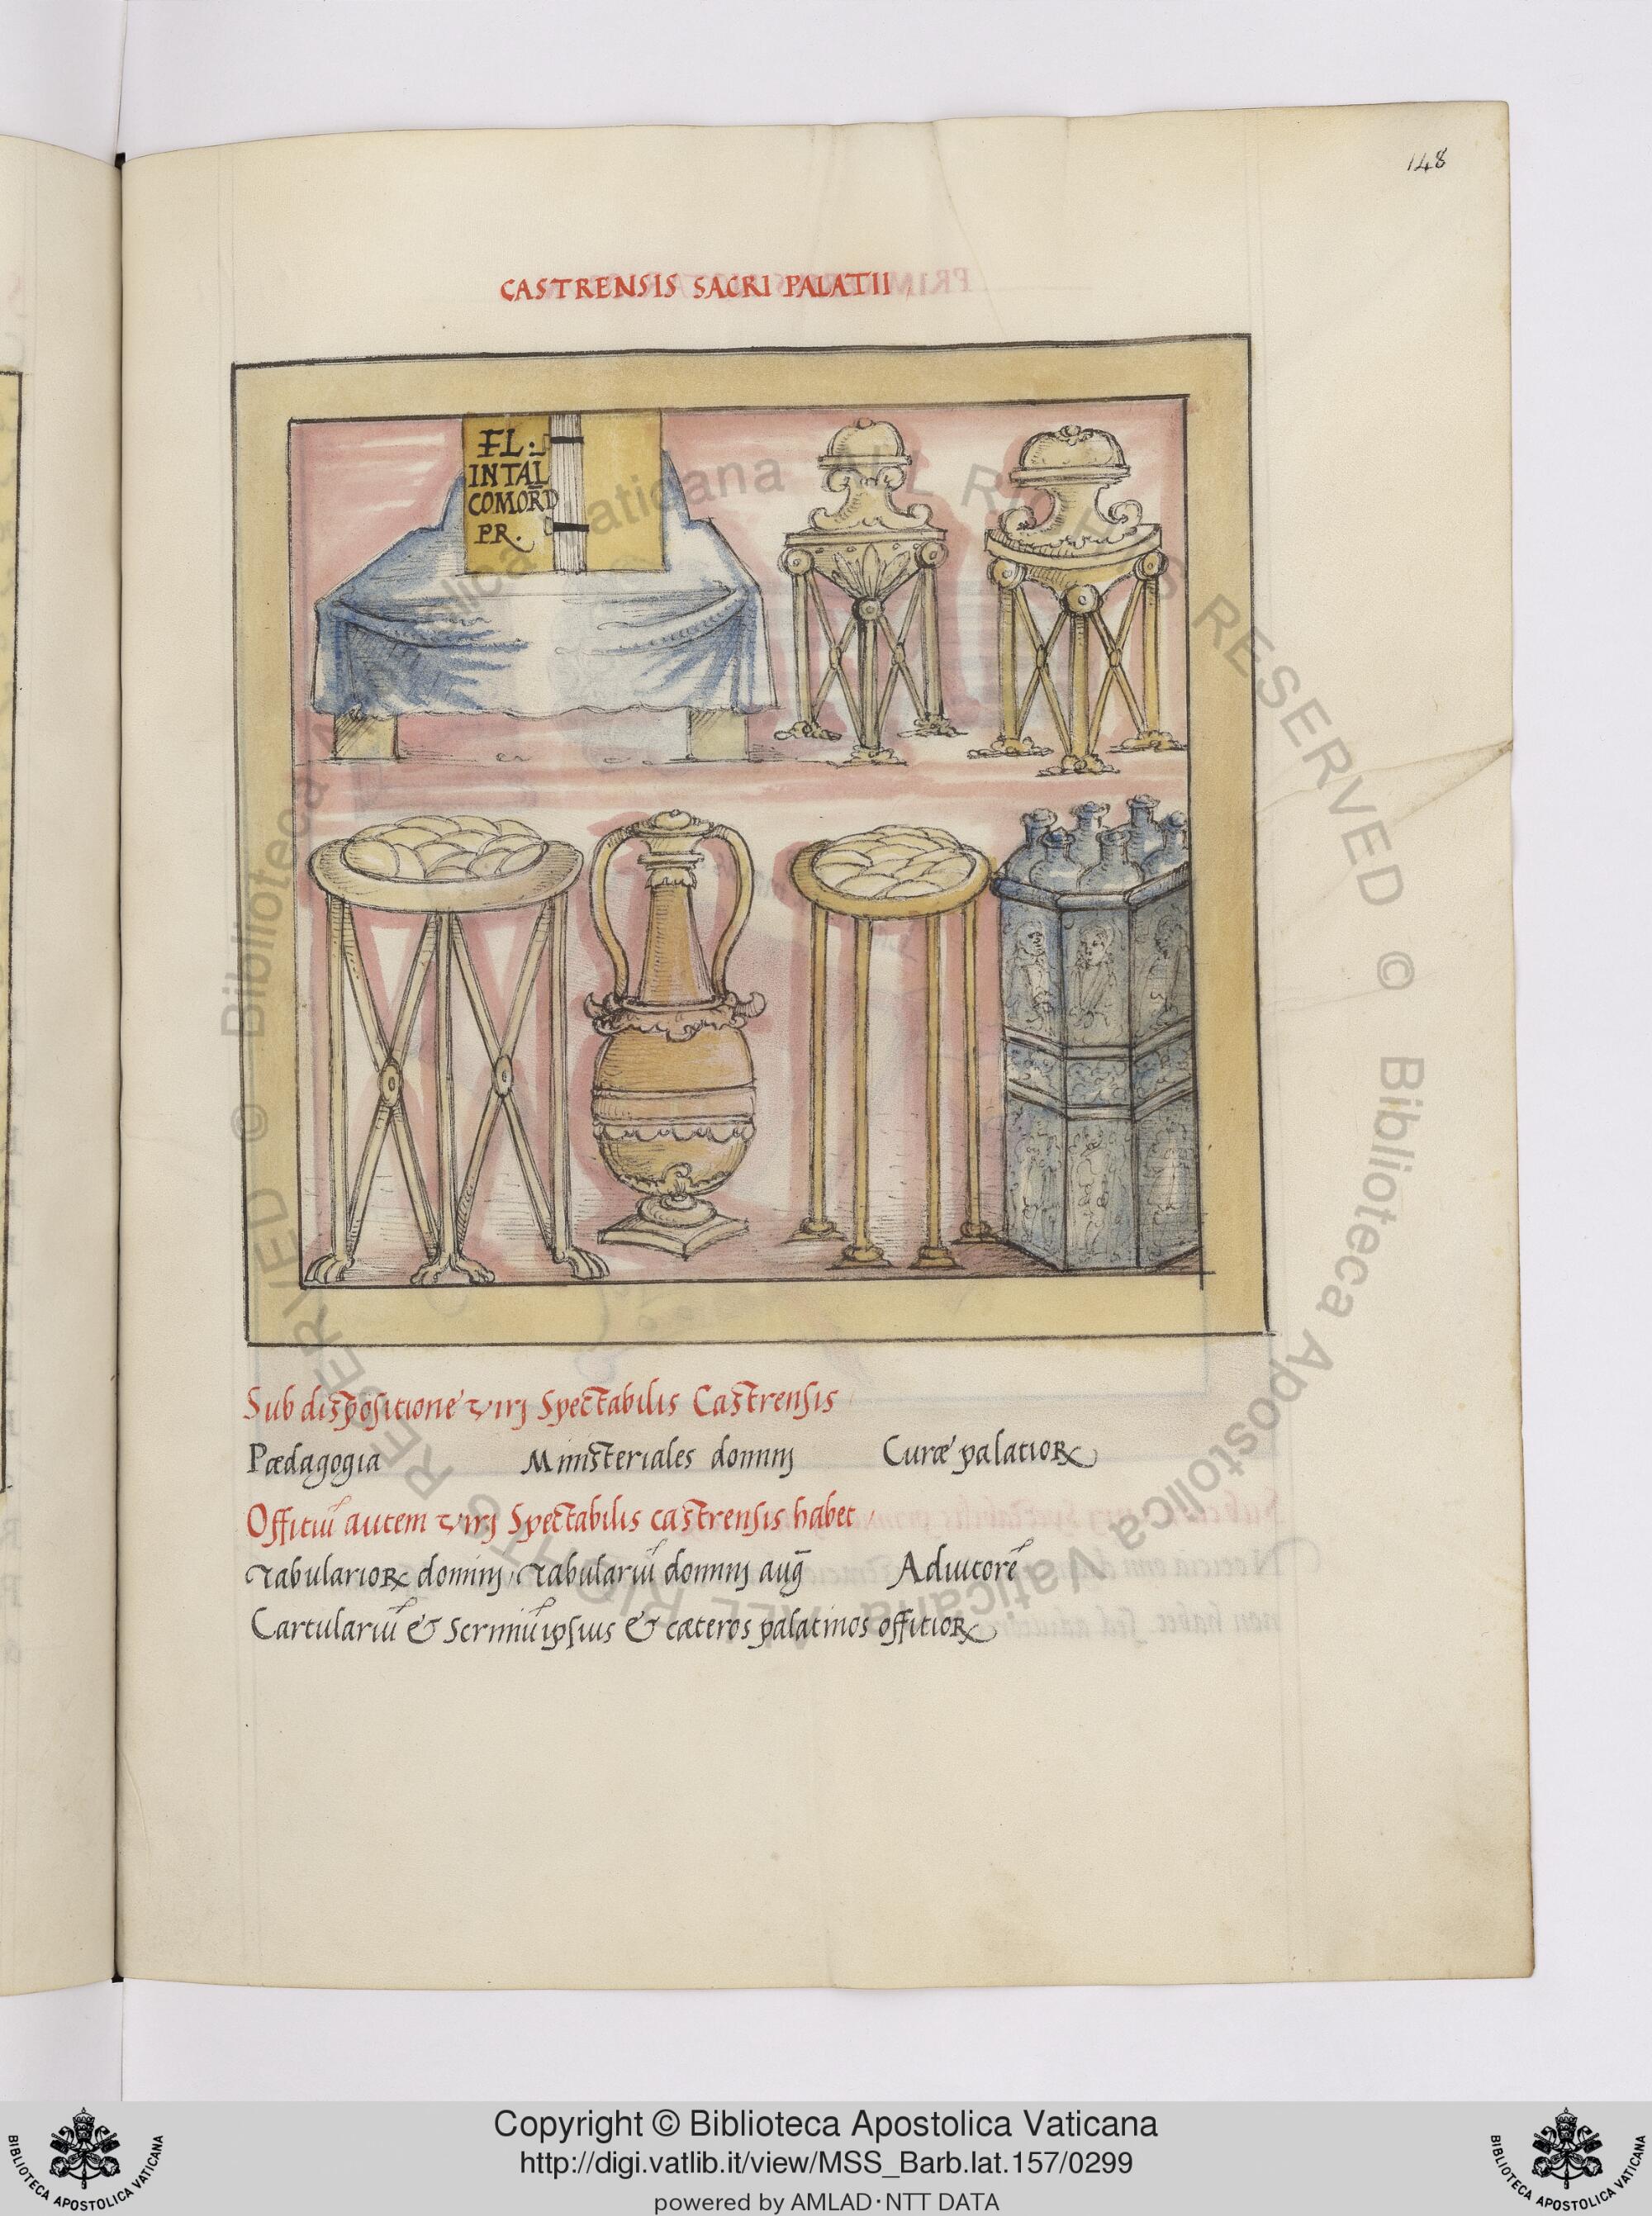 148
CASTRENSIS SACRI PALATII
FL.
INTAL
COMORD
PR.
Sub dispositione virj Spectabilis Castrensis
Pædagogia Ministeriales dominj Curæ palatioꝝ
Offitiū autem virj Spectabilis castrensis habet
Tabularioꝝ dominj, Tabulariū dominj auḡ Adiutorē
Cartulariū & Scriniū ipsius & cæteros palatinos offitioꝝ
© Biblioteca Apostolica Vaticana ALL RIGHTS RESERVED
© Biblioteca Apostolica Vaticana ALL RIGHTS RESERVED
Copyright © Biblioteca Apostolica Vaticana
http://digi.vatlib.it/view/MSS_Barb.lat.157/0299
powered by AMLAD·NTT DATA
BIBLIOTECA APOSTOLICA VATICANA
BIBLIOTECA APOSTOLICA VATICANA